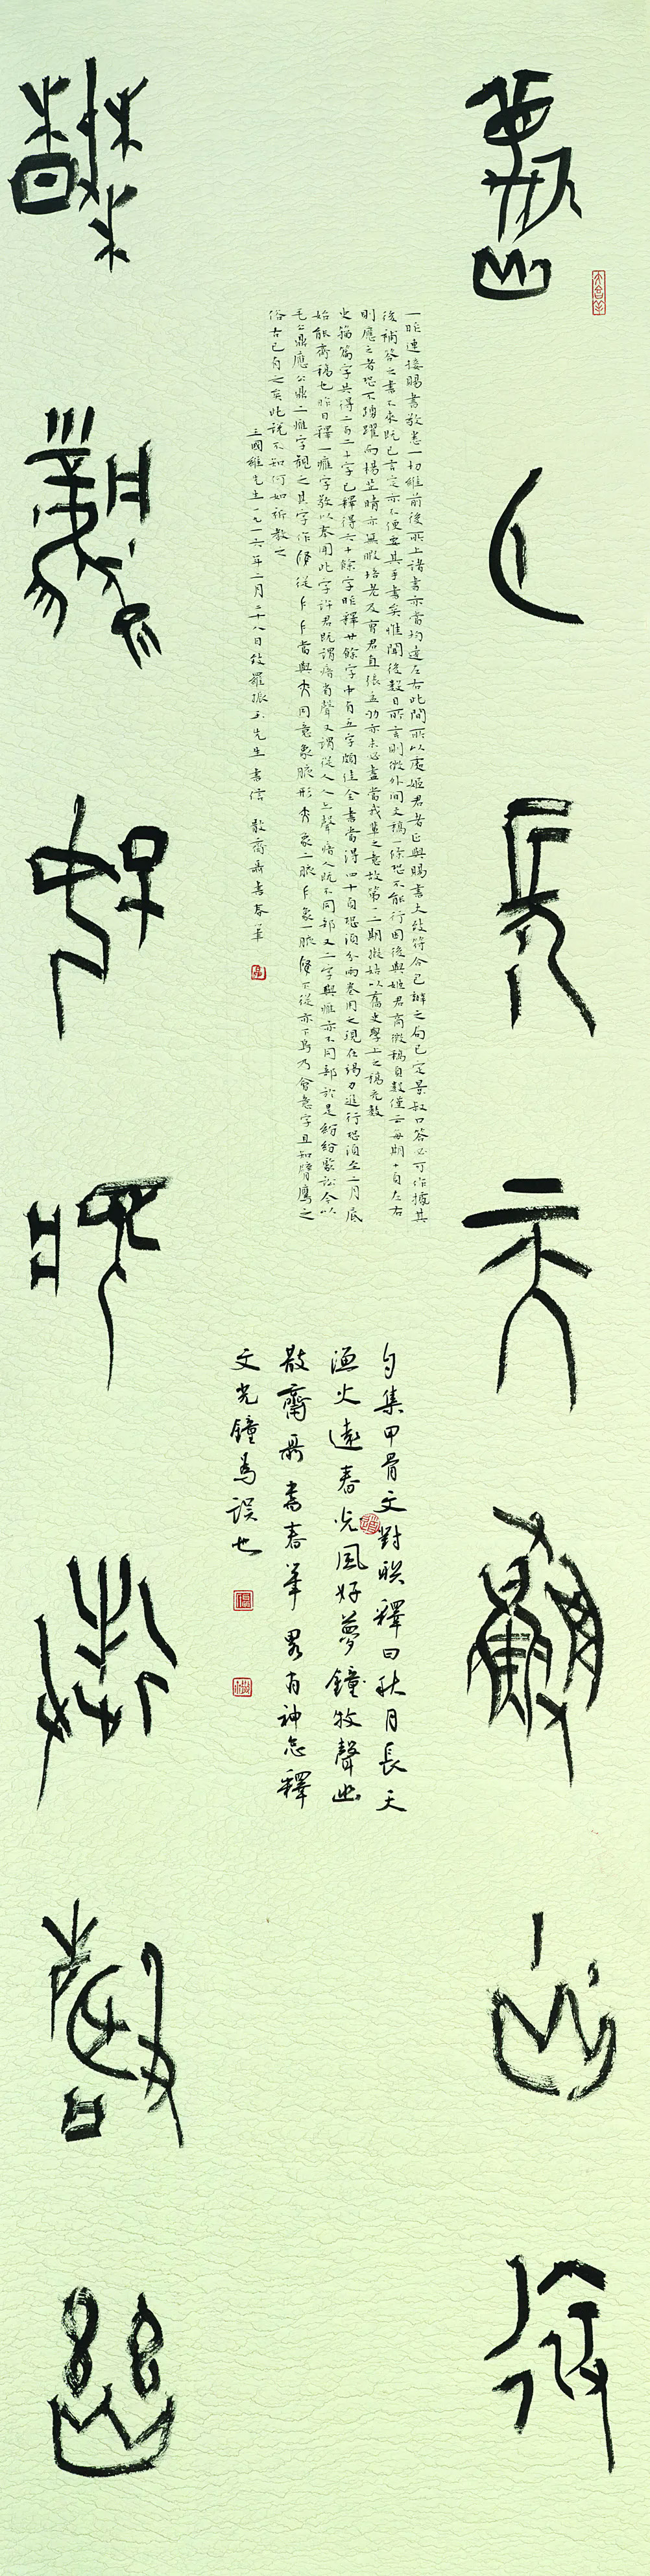 秋月長天漁火遠
春風好夢牧聲幽
一昨連接賜書敬悉一切維前後所上諸書亦當均達左右此間所以處姬君者正與賜書大致符合已辦之句已定景叔口答必可作據其
後補答之書不來既已言定亦不便索其手書矣惟聞後數日所言則徵外間文稿一條恐不能行因後與姬君商徵稿頁數僅云每期十頁左右
則應之者恐不踴躍而楊芷晴亦無暇培老及君直張孟劬亦未必盡當我輩之意故第二期擬姑以舊史學上之稿充數
史籀篇字共得二百二十字已釋得六十餘字昨釋廿餘字中有五字頗佳全書當得四十頁恐須分兩卷用之現在竭力進行恐須至二月底
始能齊稿也昨日釋一雁字敬以奉聞此字許君既謂瘖省聲又謂從人人亦聲瘖人既不同部又二字與雁亦不同部於是紛紛聚訟今以
毛公鼎應公鼎二雁字觀之其字作從當與亦同意象腋形亦象二腋象一腋下從亦下鳥乃會意字且知臂鷹之
俗古已有之矣此說不知何如祈教之
王國維先生一九一六年二月二十八日致羅振玉先生書信 散齋聶書春筆
句集甲骨文對联釋曰秋月長天
漁火遠春光風好夢鐘牧聲幽
散齋聶書春筆畧有神怎釋
文光鐘為誤也